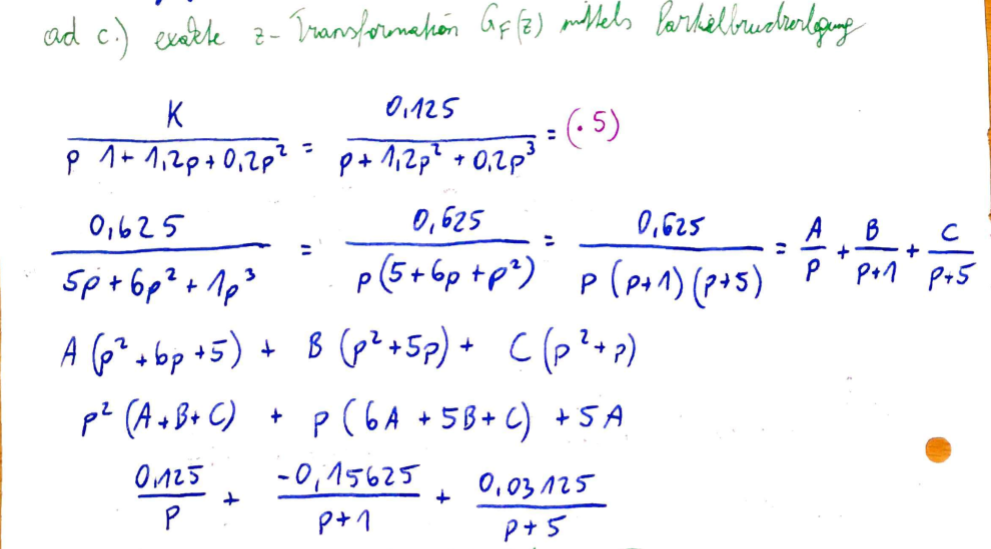 ad c.) exakte z-Transformation G_F(z) mittels Partialbruchzerlegung
K / (p 1 + 1,2p + 0,2p²) = 0,125 / (p + 1,2p² + 0,2p³) = (· 5)
0,625 / (5p + 6p² + 1p³) = 0,625 / (p(5 + 6p + p²)) = 0,625 / (p (p+1) (p+5)) = A/p + B/(p+1) + C/(p+5)
A (p² + 6p + 5) + B (p² + 5p) + C (p² + p)
p² (A + B + C) + p (6A + 5B + C) + 5A
0,125/p + -0,15625/(p+1) + 0,03125/(p+5)